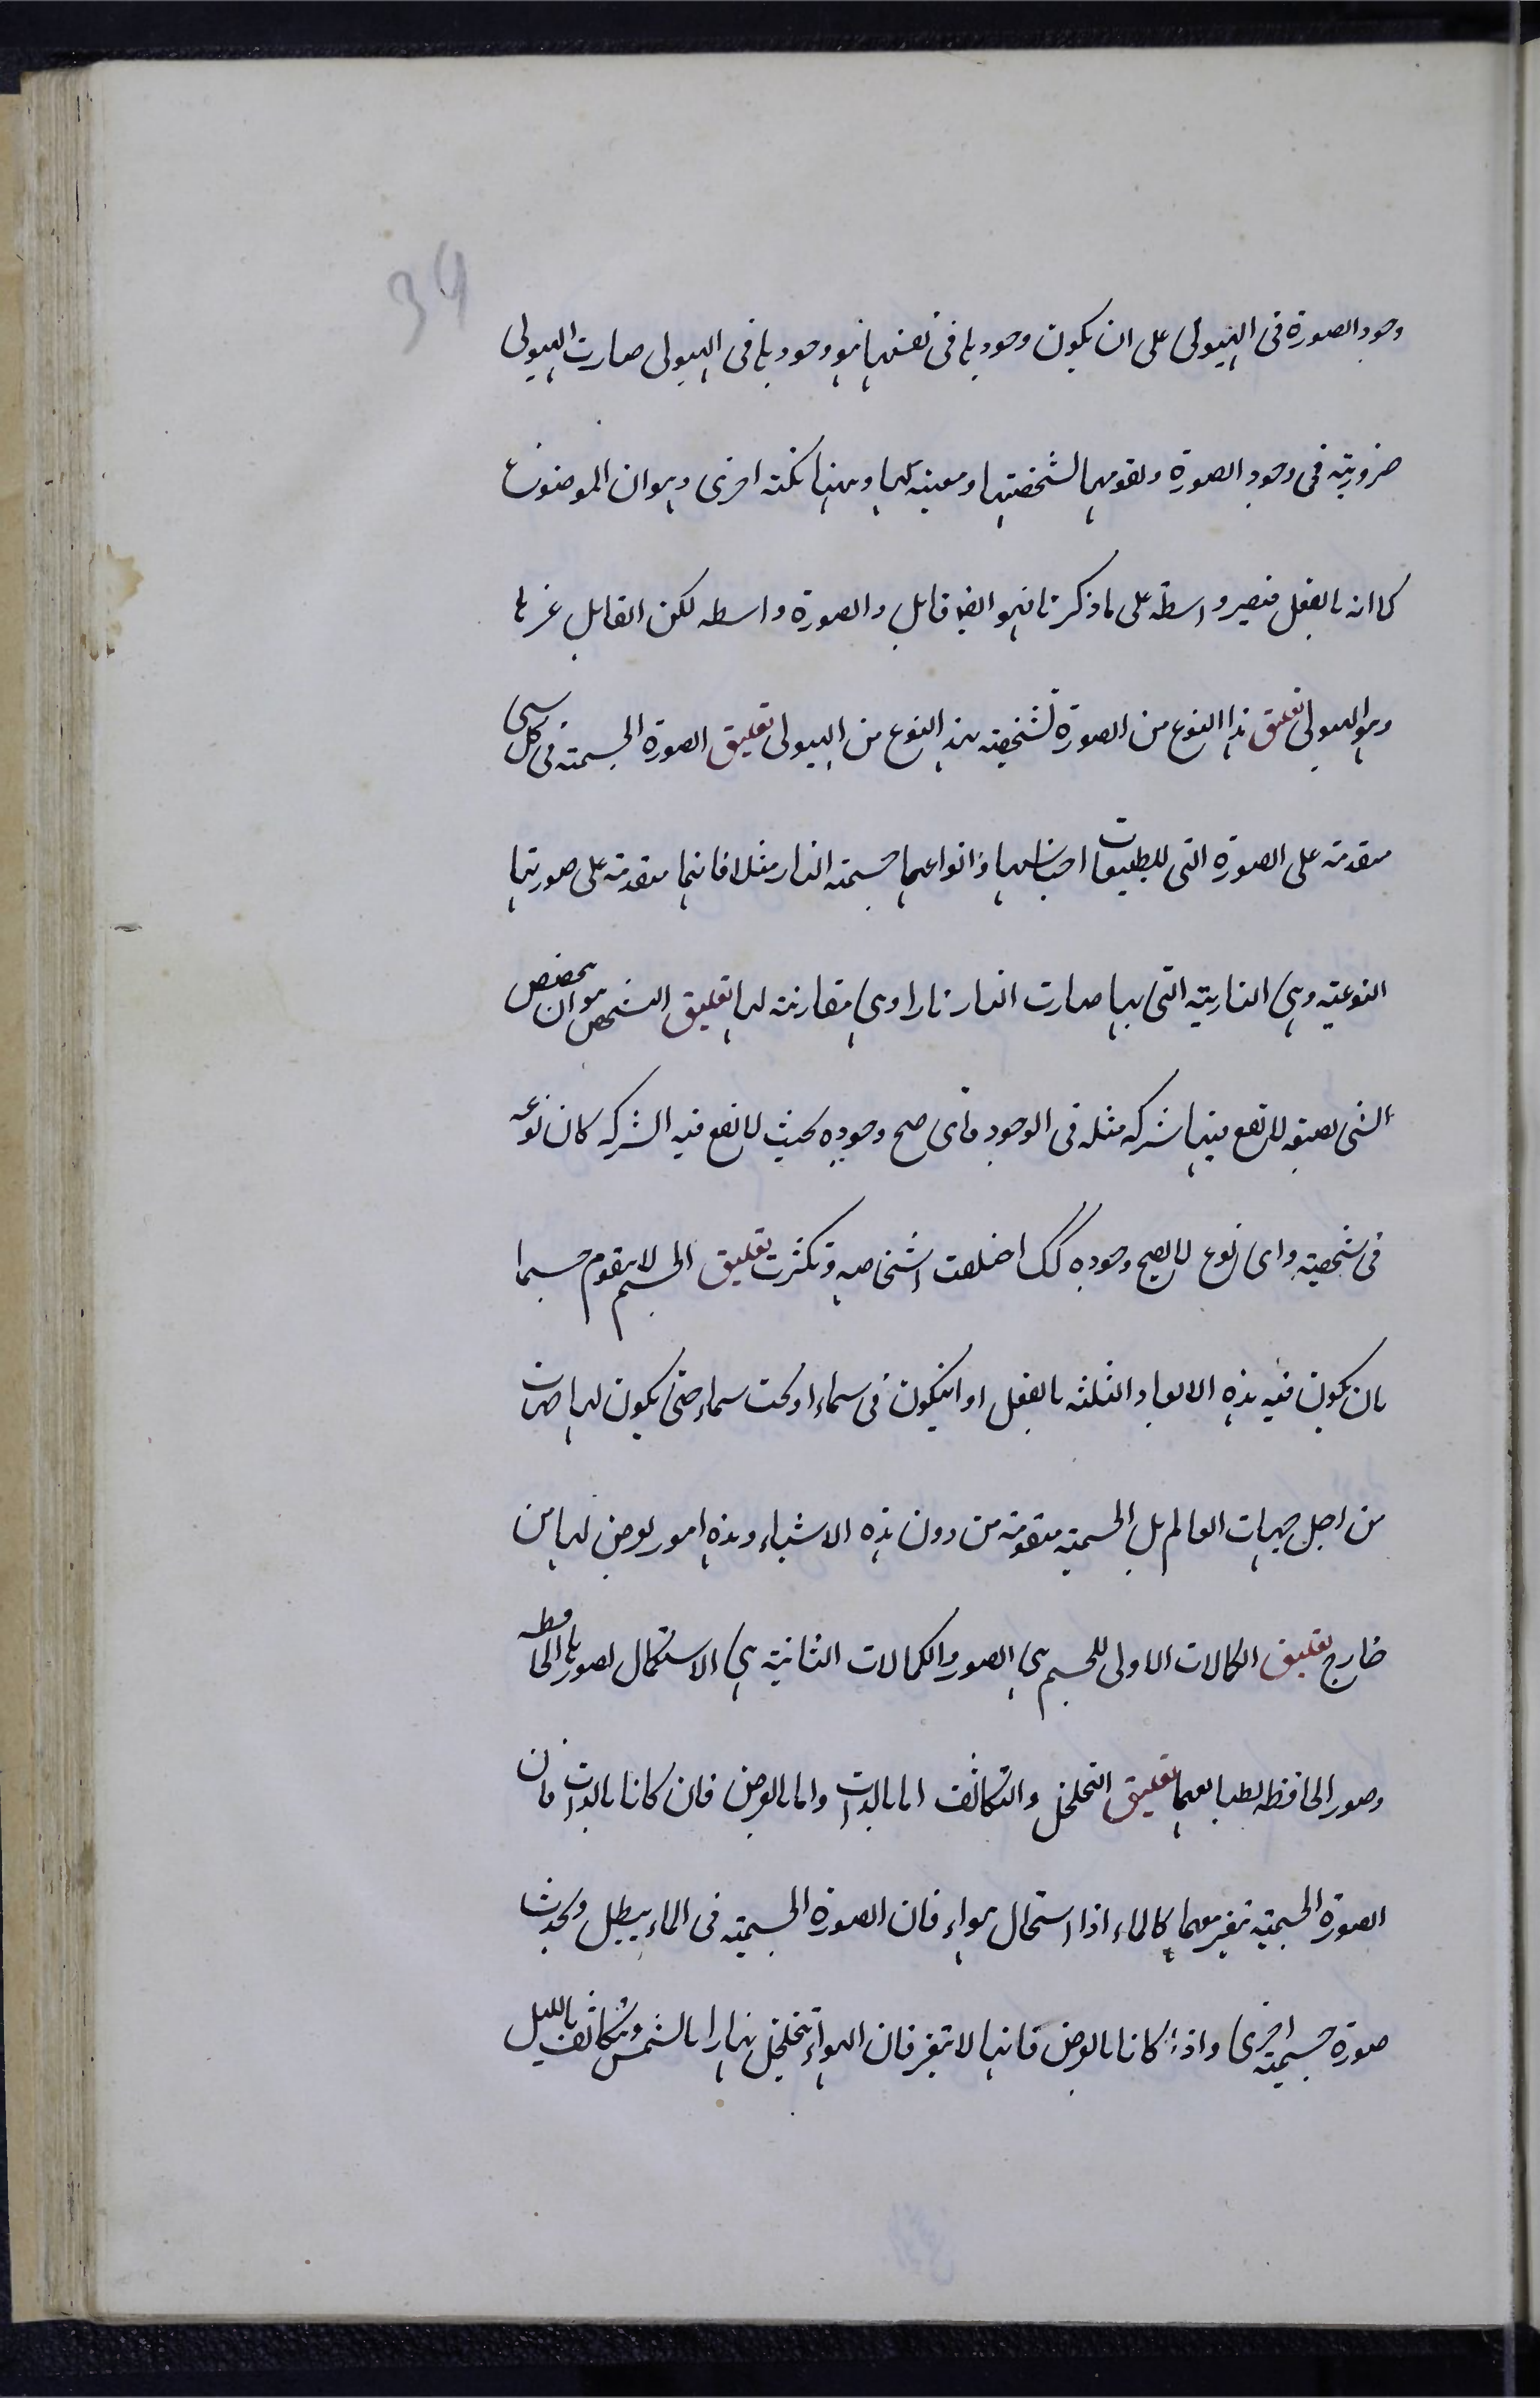 34
وجود الصورة فى الهيولى على ان يكون وجودها فى نفسها هو وجودها فى الهيولى صارت الهيولى
ضرورية فى وجود الصورة وتقومها لشخصيتها ومعينه لها وههنا نكته اخرى وهو ان الموضوع
كما انه بالفعل فيصير واسطة على ما ذكرنا فهو ايضا قابل والصورة واسطه لكن القابل غيرها
وهو الهيولى تعليق هذا النوع من الصورة تشخصية هذا النوع من الهيولى تعليق الصورة الجسمية فى كل شى
متقدمة على الصورة التى للطبيعيات اجناسها وانواعها جسمية النار مثلا فانها متقدمة على صورتها
النوعية وهى النارية التى بها صارت النار نارا وهى مقارنة لها تعليق التشخص هو ان يتخصص
الشى بصفة لا تقع فيها شركه مثله فى الوجود فاى صح وجوده بحيث لا تقع فيه الشركه كان نوعه
فى شخصيته واى نوع لا يصح وجوده كك اختلفت اشخاصه وتكثرت تعليق الجسم لا يتقوم جسما
بان يكون فيه هذه الابعاد الثلثه بالفعل او ان يكون فى سماء او تحت سماء حتى يكون لها جهات
من اجل جهات العالم بل الجسمية متقومة من دون هذه الاشياء وهذه امور تعرض لها من
خارج تعليق الكمالات الاولى للجسم هى الصور والكمالات الثانية هى الاستكمال لصورها الحافظه
وصور الحافظه لطبايعها تعليق التخلخل والتكاثف اما بالذات واما بالعرض فان كانا بالذات فان
الصورة الجسمية تتغير معهما كالماء اذا استحال هواء فان الصورة الجسمية فى الماء يبطل ويحدث
صورة جسمية اخرى واذا كانا بالعرض فانها لا تتغير فان الهواء يتخلخل نهارا بالشمس ويتكاثف بالليل